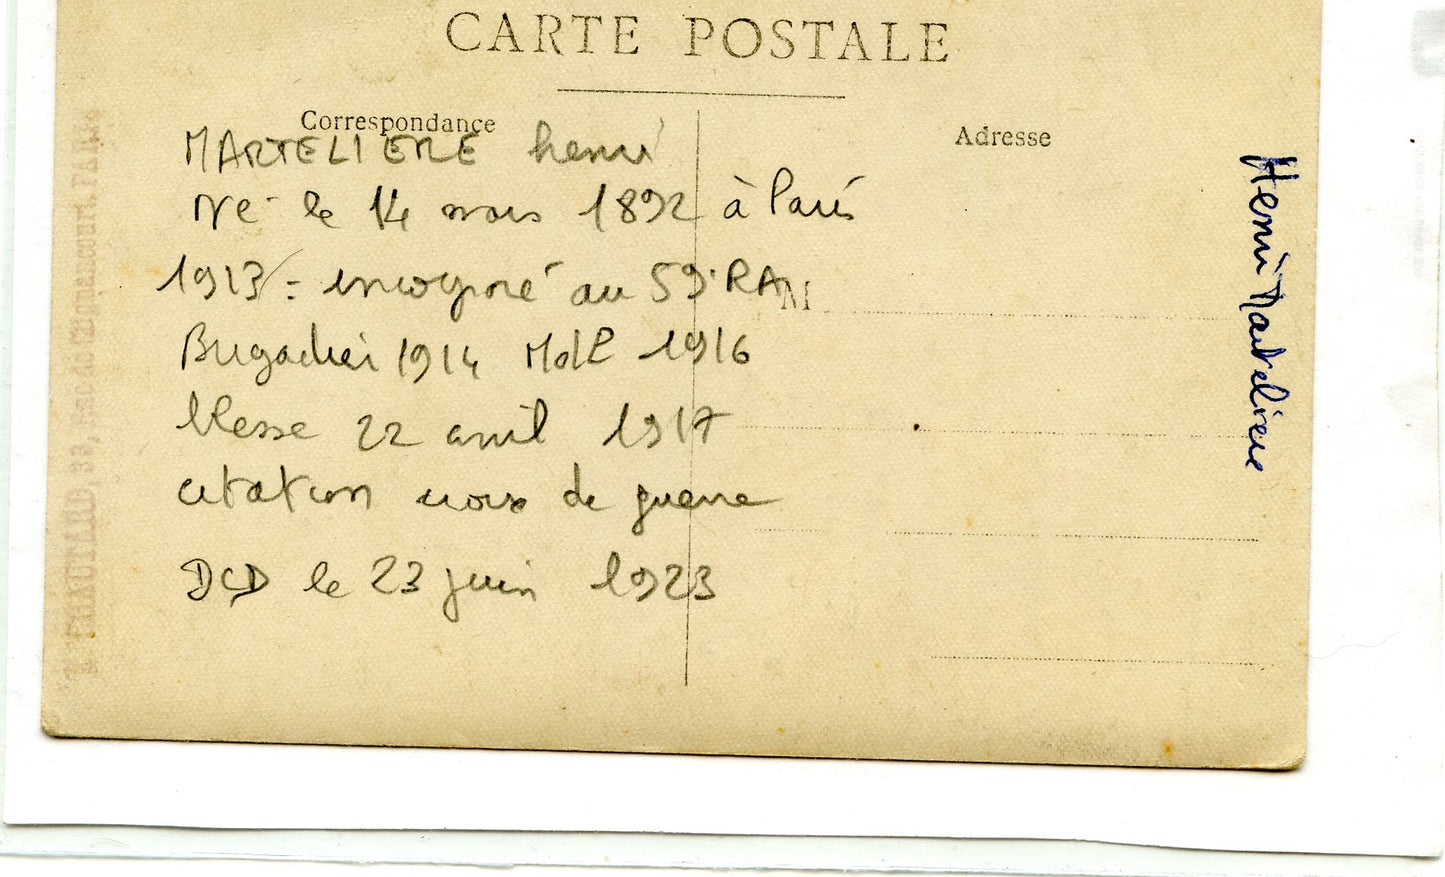 CARTE POSTALE
Correspondance
Adresse
MARTELIERE henri
Né le 14 mars 1892 à Paris
1913 = incorporé au 59e RA
M
Brigadier 1914 MdL 1916
blesse 22 avril 1917
citation croix de guerre
DCD le 23 juin 1923
Henri Martelière
CHAUTARD, 33, Rue de